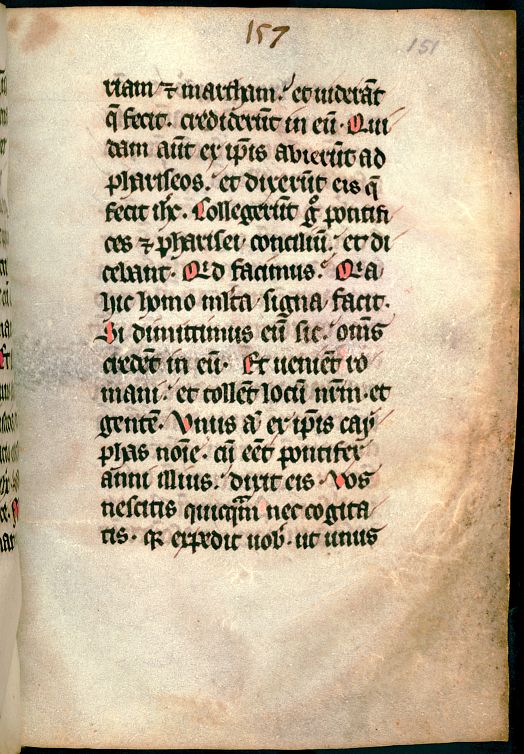 157
151
riam ⁊ martham. et uideràt
q̄ fecit. crediderūt in eū. Qui
dam aūt ex ip̄is abierūt ad
phariseos. et dixerūt eis q̄
fecit ihꝰ. Collegerūt gͦ pontifi
ces ⁊ pharisei conciliū. et di
cebant. Qͥd facimus. Qꝛa
hic homo ml̄ta signa facit.
Si dimittimus eū sic. om̄s
credēt in eū. Et ueniēt ro
mani. et tollēt locū nr̄m. et
gentē. Vnus aͭ ex ip̄is cay
phas noīe. cū eēt pontifex
anni illius. dixit eis. Vos
nescitis quicqͣm nec cogita
tis. qꝛ expedit uob̄. ut unus